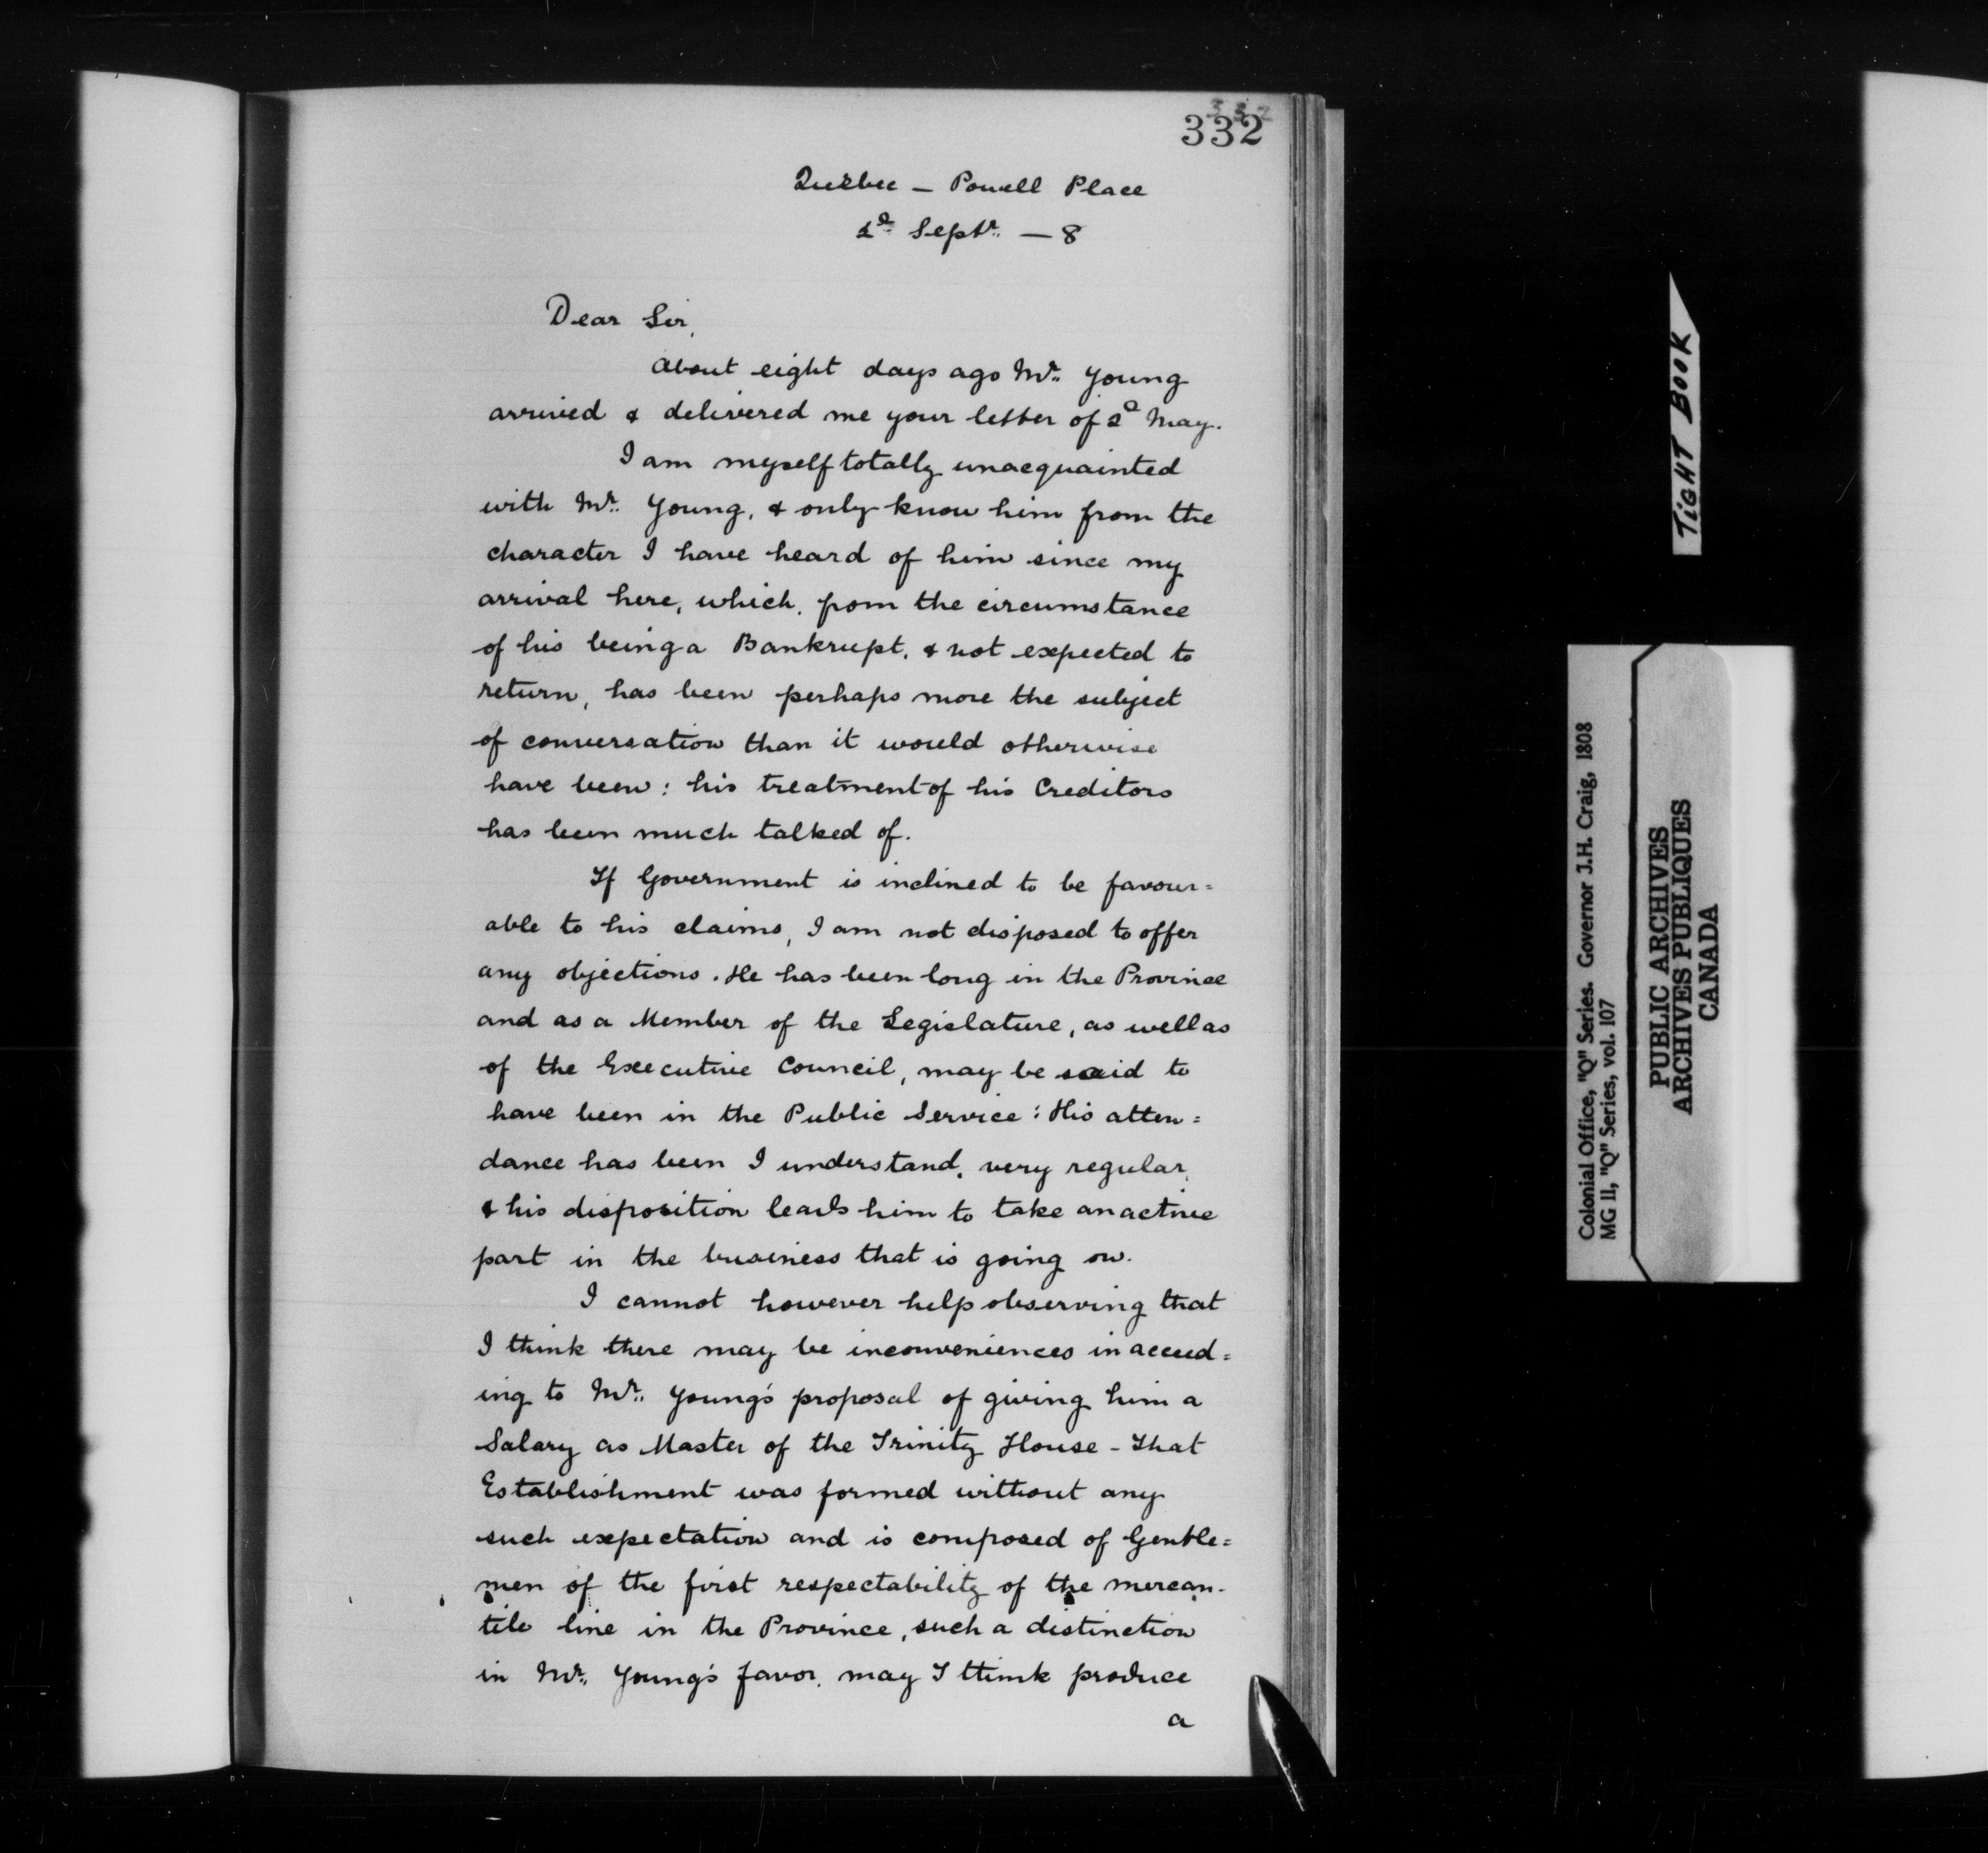 332
332
Quebec - Powell Place
2d Septr. - 8
Dear Sir,
About eight days ago Mr. Young
arrived & delivered me your letter of 2d May.
I am myself totally unacquainted
with Mr. Young, & only know him from the
character I have heard of him since my
arrival here, which, from the circumstance
of his being a Bankrupt, & not expected to
return, has been perhaps more the subject
of conversation than it would otherwise
have been: his treatment of his Creditors
has been much talked of.
If Government is inclined to be favour=
able to his claims, I am not disposed to offer
any objections. He has been long in the Province
and as a Member of the Legislature, as well as
of the Executive Council, may be said to
have been in the Public Service: His atten=
dance has been I understand, very regular,
& his disposition leads him to take an active
part in the business that is going on.
I cannot however help observing that
I think there may be inconveniences in acced=
ing to Mr. Young's proposal of giving him a
Salary as Master of the Trinity House - That
Establishment was formed without any
such expectation and is composed of Gentle=
men of the first respectability of the mercan-
tile line in the Province, such a distinction
in Mr. Young's favor, may I think produce
a
TIGHT BOOK
Colonial Office, "Q" Series. Governor J.H. Craig, 1808
MG 11, "Q" Series, vol. 107
PUBLIC ARCHIVES
ARCHIVES PUBLIQUES
CANADA